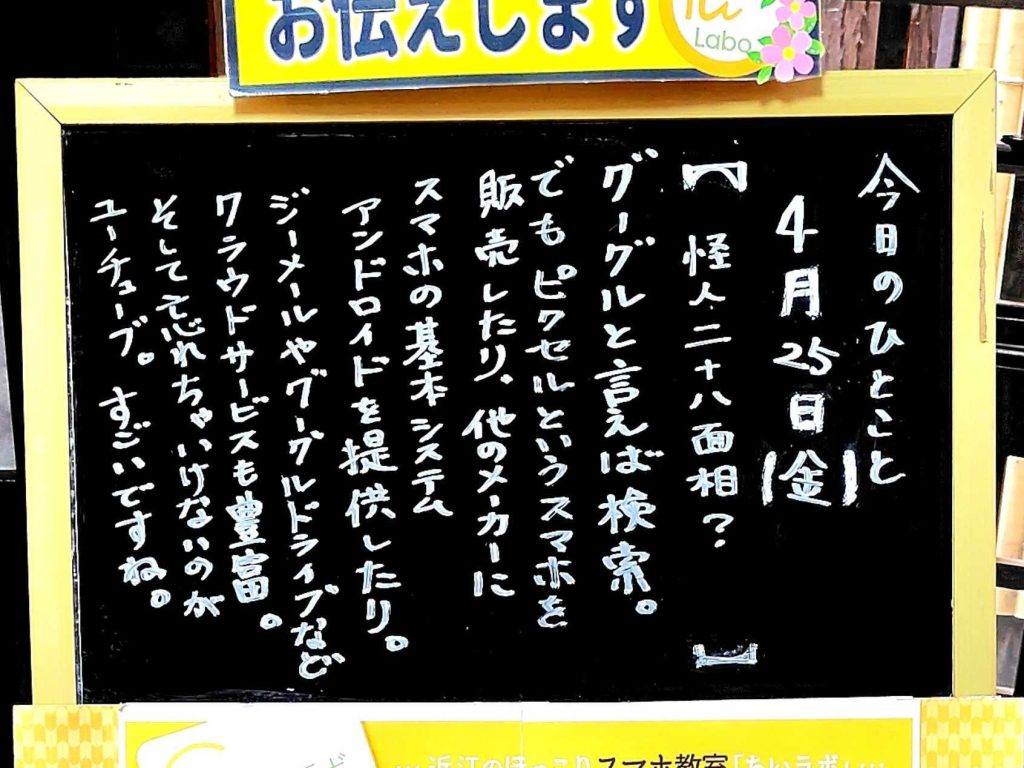 お伝えします
Labo
今日のひとこと
4月25日(金)
【 怪人二十八面相? 】
グーグルと言えば検索。
でもピクセルというスマホを
販売したり、他のメーカーに
スマホの基本システム
アンドロイドを提供したり。
ジーメールやグーグルドライブなど
クラウドサービスも豊富。
そして忘れちゃいけないのが
ユーチューブ。すごいですね。
…近江のほっこりスマホ教室「ちいラボ」…